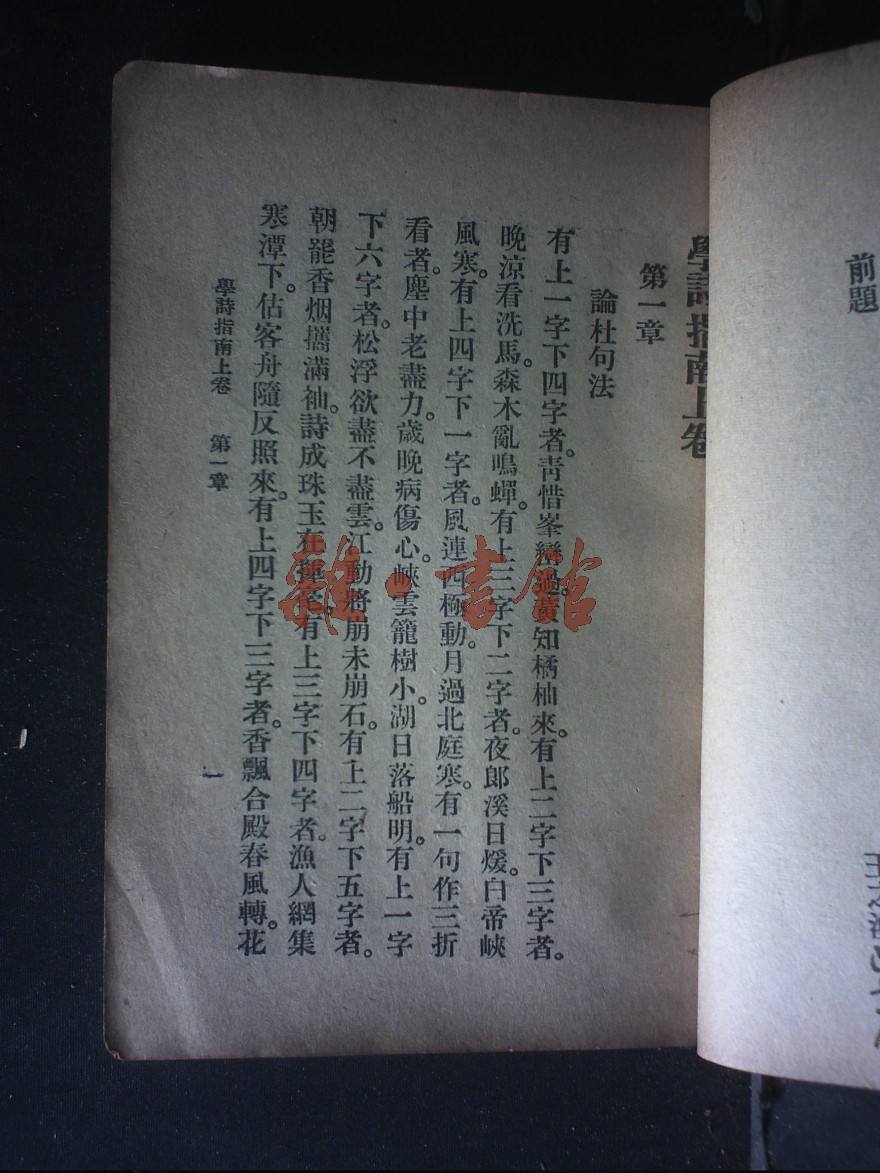 前題
學詩指南上卷
第一章
論杜句法
有上一字下四字者。靑惜峯巒過。黃知橘柚來。有上二字下三字者。
晚涼看洗馬。森木亂鳴蟬。有上三字下二字者。夜郎溪日煖。白帝峽
風寒。有上四字下一字者。風連西極動。月過北庭寒。有一句作三折
看者。塵中老盡力。歲晚病傷心。峽雲籠樹小。湖日落船明。有上一字
下六字者。松浮欲盡不盡雲。江動將崩未崩石。有上二字下五字者。
朝罷香烟攜滿袖。詩成珠玉在揮毫。有上三字下四字者。漁人網集
寒潭下。估客舟隨反照來。有上四字下三字者。香飄合殿春風轉。花
學詩指南上卷 第一章
一
雜·書館